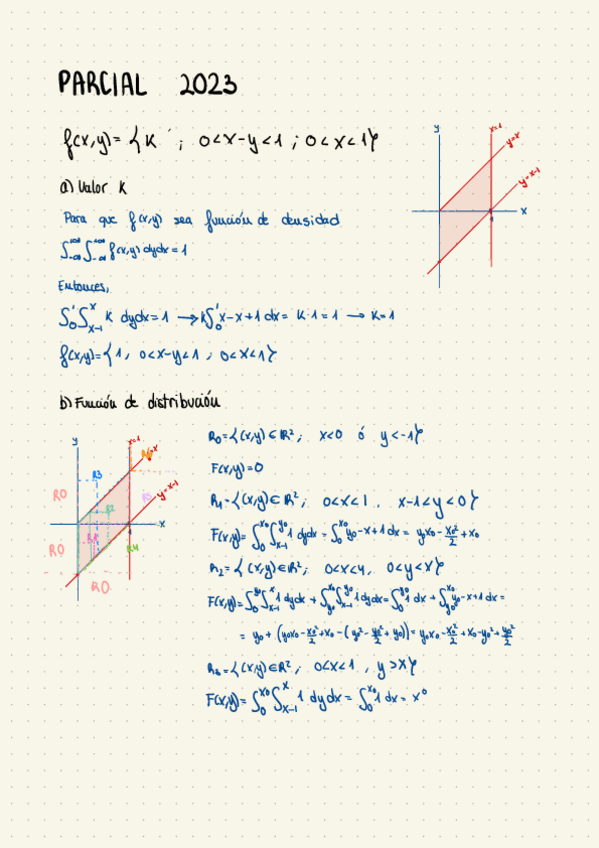 PARCIAL 2023
f(x,y)= { K ; 0<x-y<1 ; 0<x<1 }
y
x=1
y=x
y=x-1
x
a) Valor K
Para que f(x,y) sea función de densidad
∫-∞+∞ ∫-∞+∞ f(x,y) dydx = 1
Entonces,
∫0 1 ∫x-1 x K dydx=1 → K∫0 1 x-x+1 dx = K·1=1 → K=1
f(x,y)= { 1, 0<x-y<1 ; 0<x<1 }
b) Función de distribución
y
x=1
y=x-1
x
R0
R0
R0
R1
R2
R3
R4
R5
R0={(x,y)∈R², x<0 ó y<-1}
F(x,y)=0
R1={(x,y)∈R², 0<x<1, x-1<y<0}
F(x,y)=∫0 x0 ∫x-1 y0 1 dydx = ∫0 x0 y0-x+1 dx = y0x0 - x0²/2 + x0
R2={(x,y)∈R²; 0<x<y, 0<y<x}
F(x,y)=∫0 y0 ∫x-1 x 1 dydx + ∫y0 x0 ∫x-1 y0 1 dydx = ∫0 y0 1 dx + ∫y0 x0 y0-x+1 dx =
= y0 + (y0x0 - x0²/2 + x0 - (y0² - y0²/2 + y0)) = y0x0 - x0²/2 + x0 - y0² + y0²/2
R3={(x,y)∈R²; 0<x<1, y>x}
F(x,y)=∫0 x0 ∫x-1 x 1 dydx = ∫0 x0 1 dx = x0